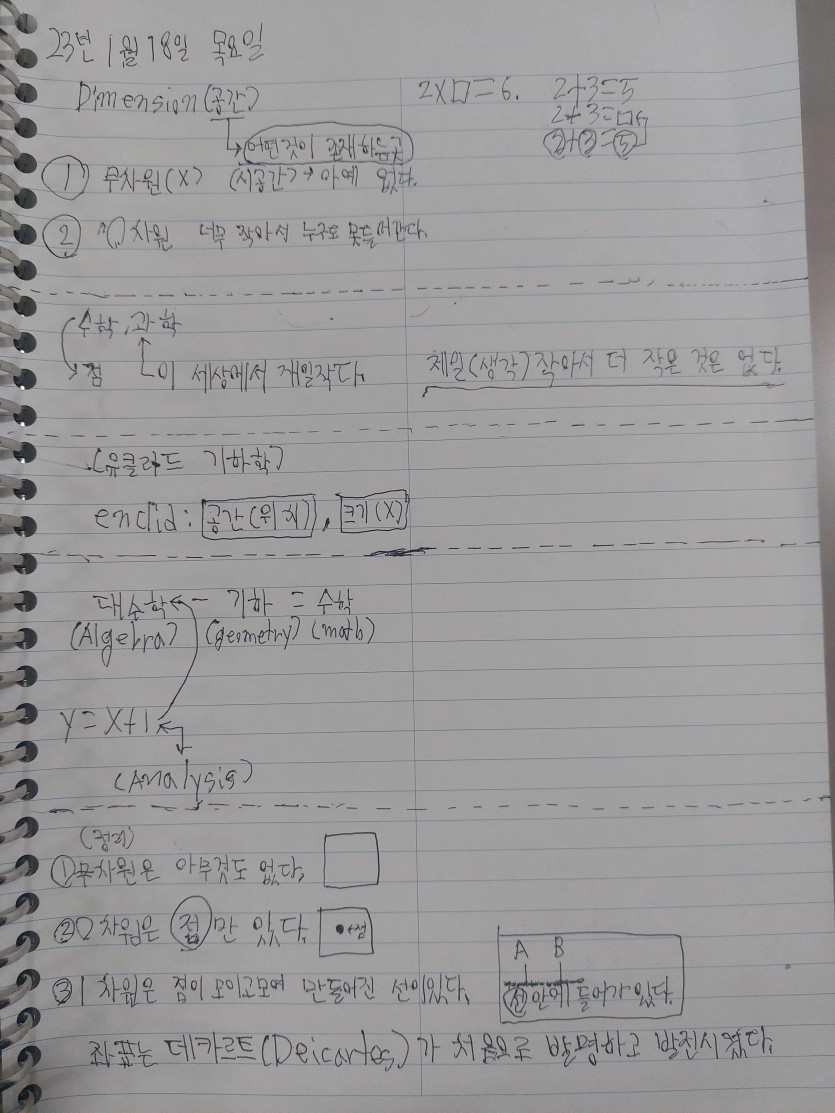 23년 1월 18일 목요일
Dimension(공간)
2×□=6. 2+3=5
2+3=□
2+3=5
어떤것이 존재하는곳
① 무차원(X) (시공간)→아예 없다.
② 차원 너무 작아서 누구도 못들어간다.
수학, 과학
점 이 세상에서 제일작다. 체밀(생각)작아서 더 작은 것은 없다.
(유클라드 기하학)
enclid: 공간(위치), 크기(X)
대수학 - 기하 = 수학
(Algebra) (geometry) (math)
y=x+1
(Analysis)
(정리)
①무차원은 아무것도 없다.
②0차원은 점만 있다. •←점
A B
③1차원은 점이 모이고모여 만들어진 선이있다. 선 안에 들어가 있다.
좌표는 데카르트(Deicartes)가 처음으로 발명하고 발전시켰다.